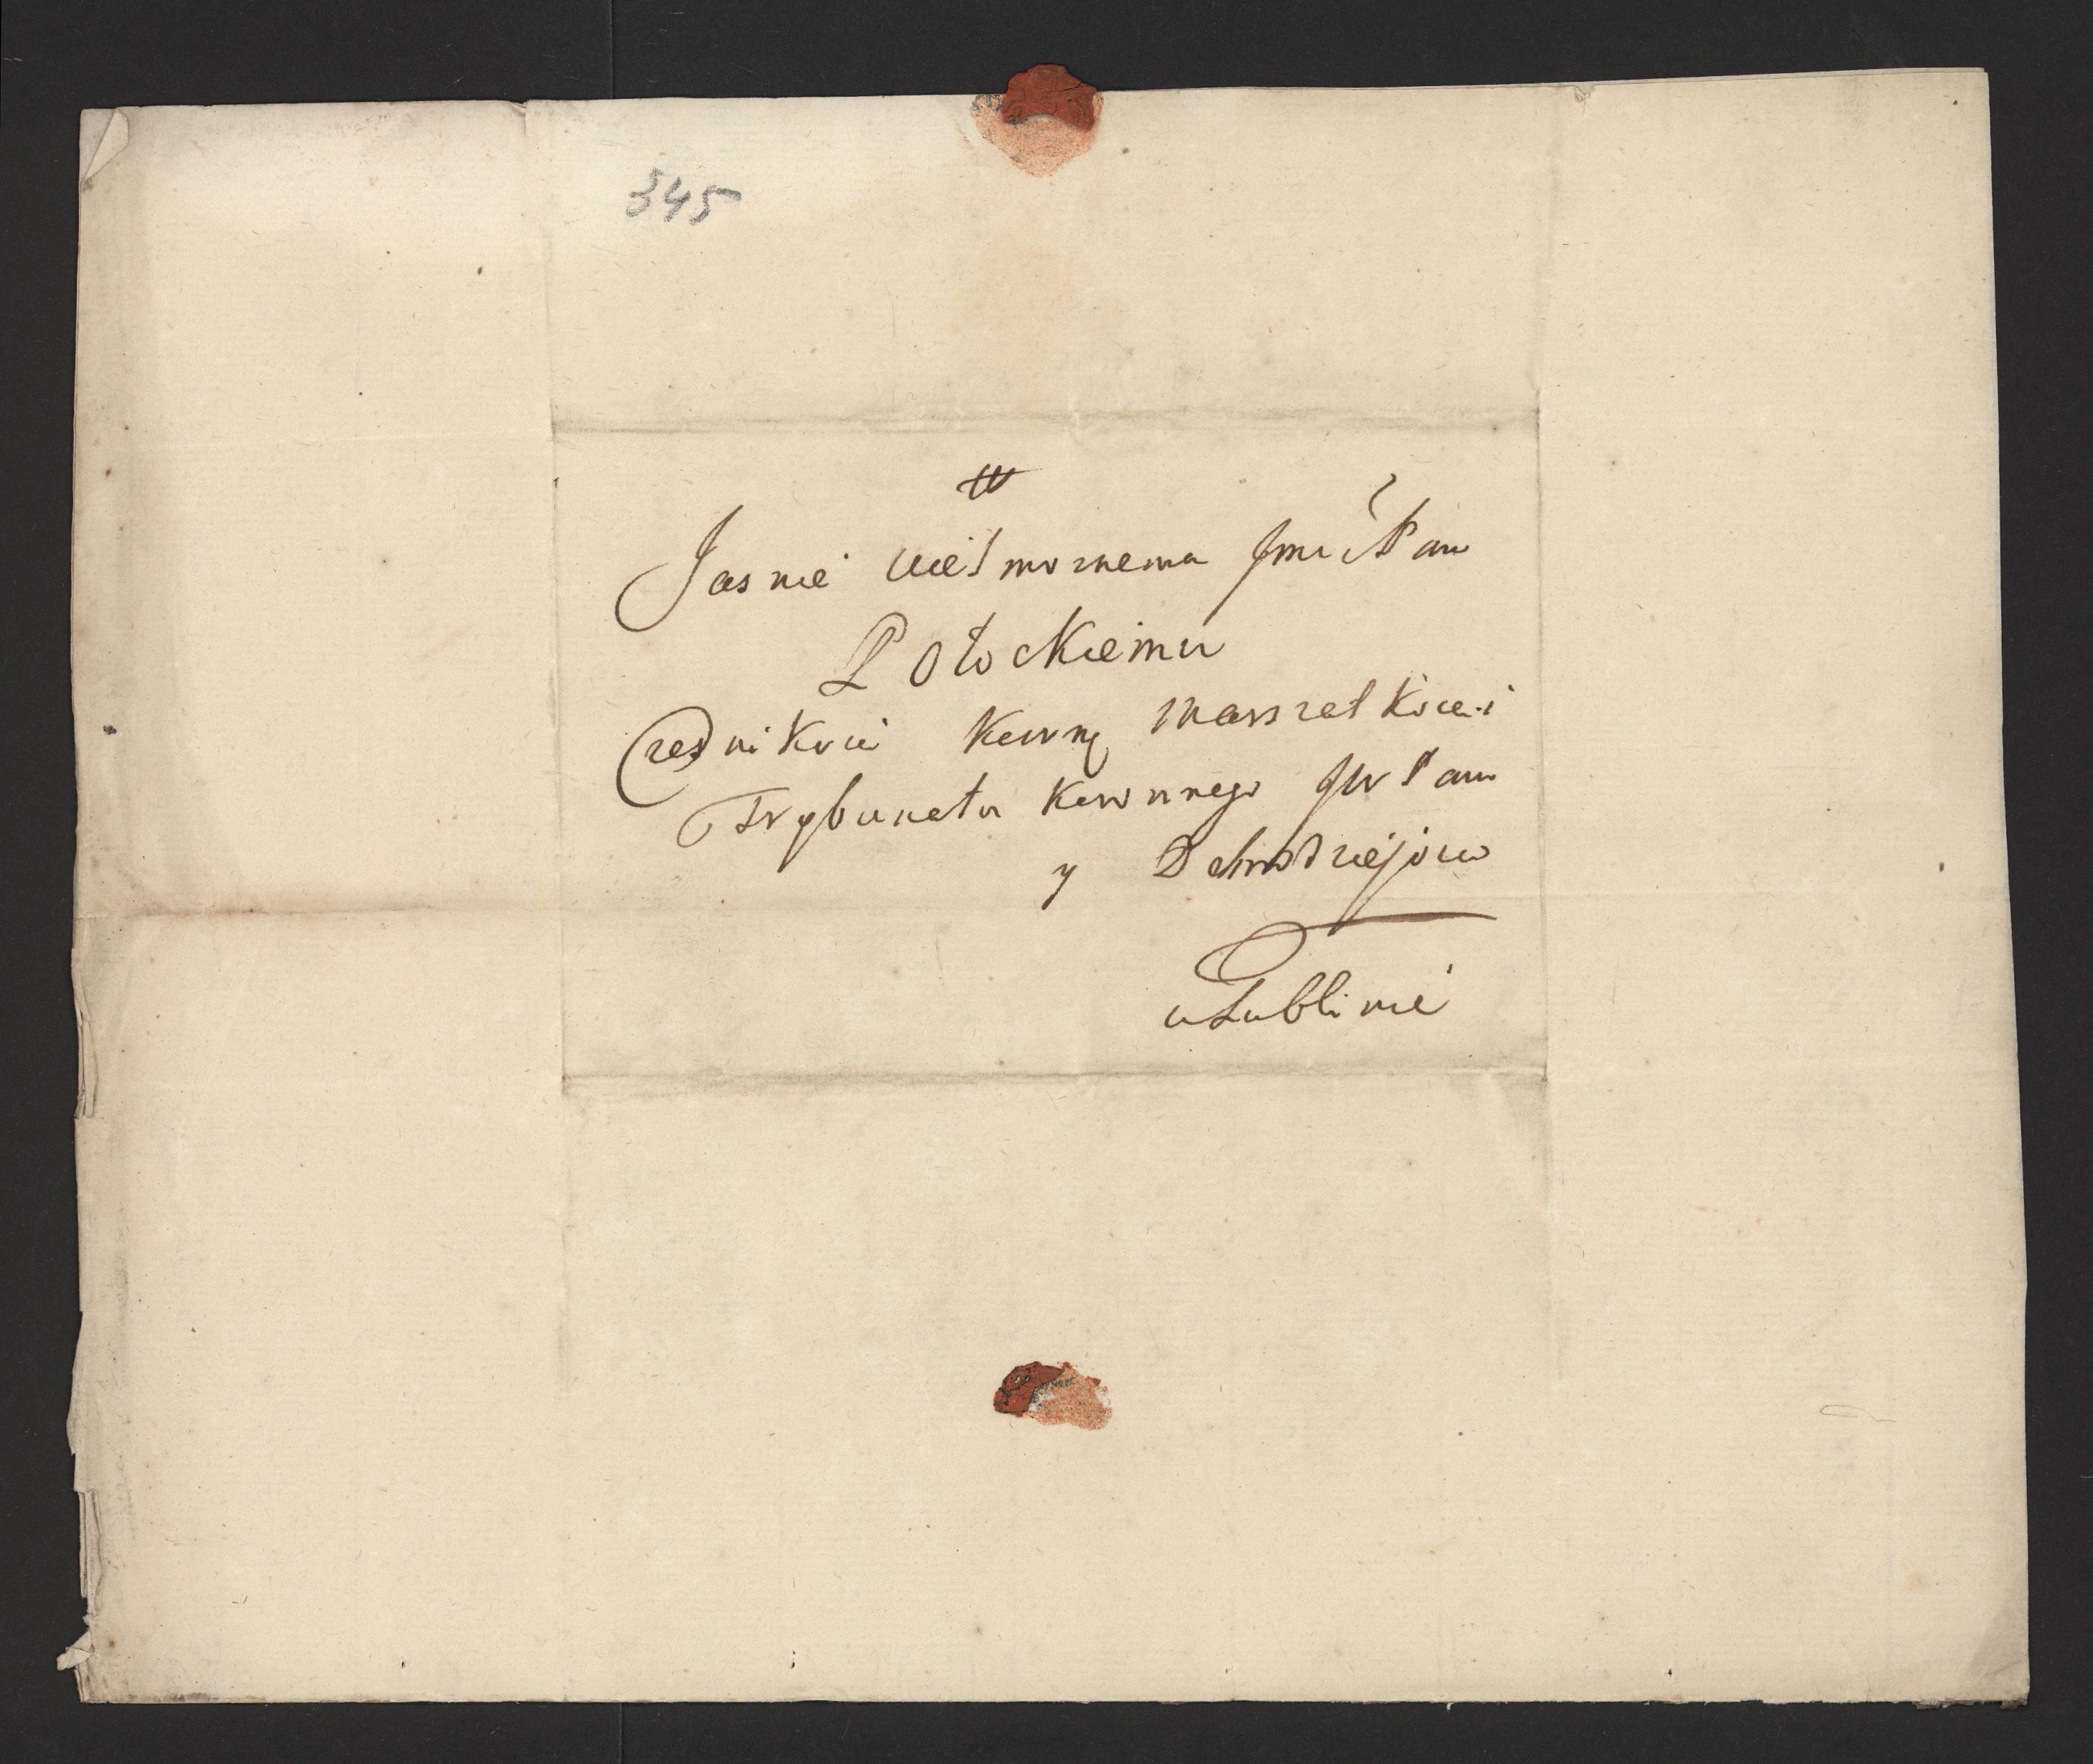 345
Jasnie Wielmoznemu Jmci Panu
Potockiemu
Czesnikowi Koronę Marszałkowi
Trybunału Koronnego JW Panu
y Dobrodziejowi
w Lublinie